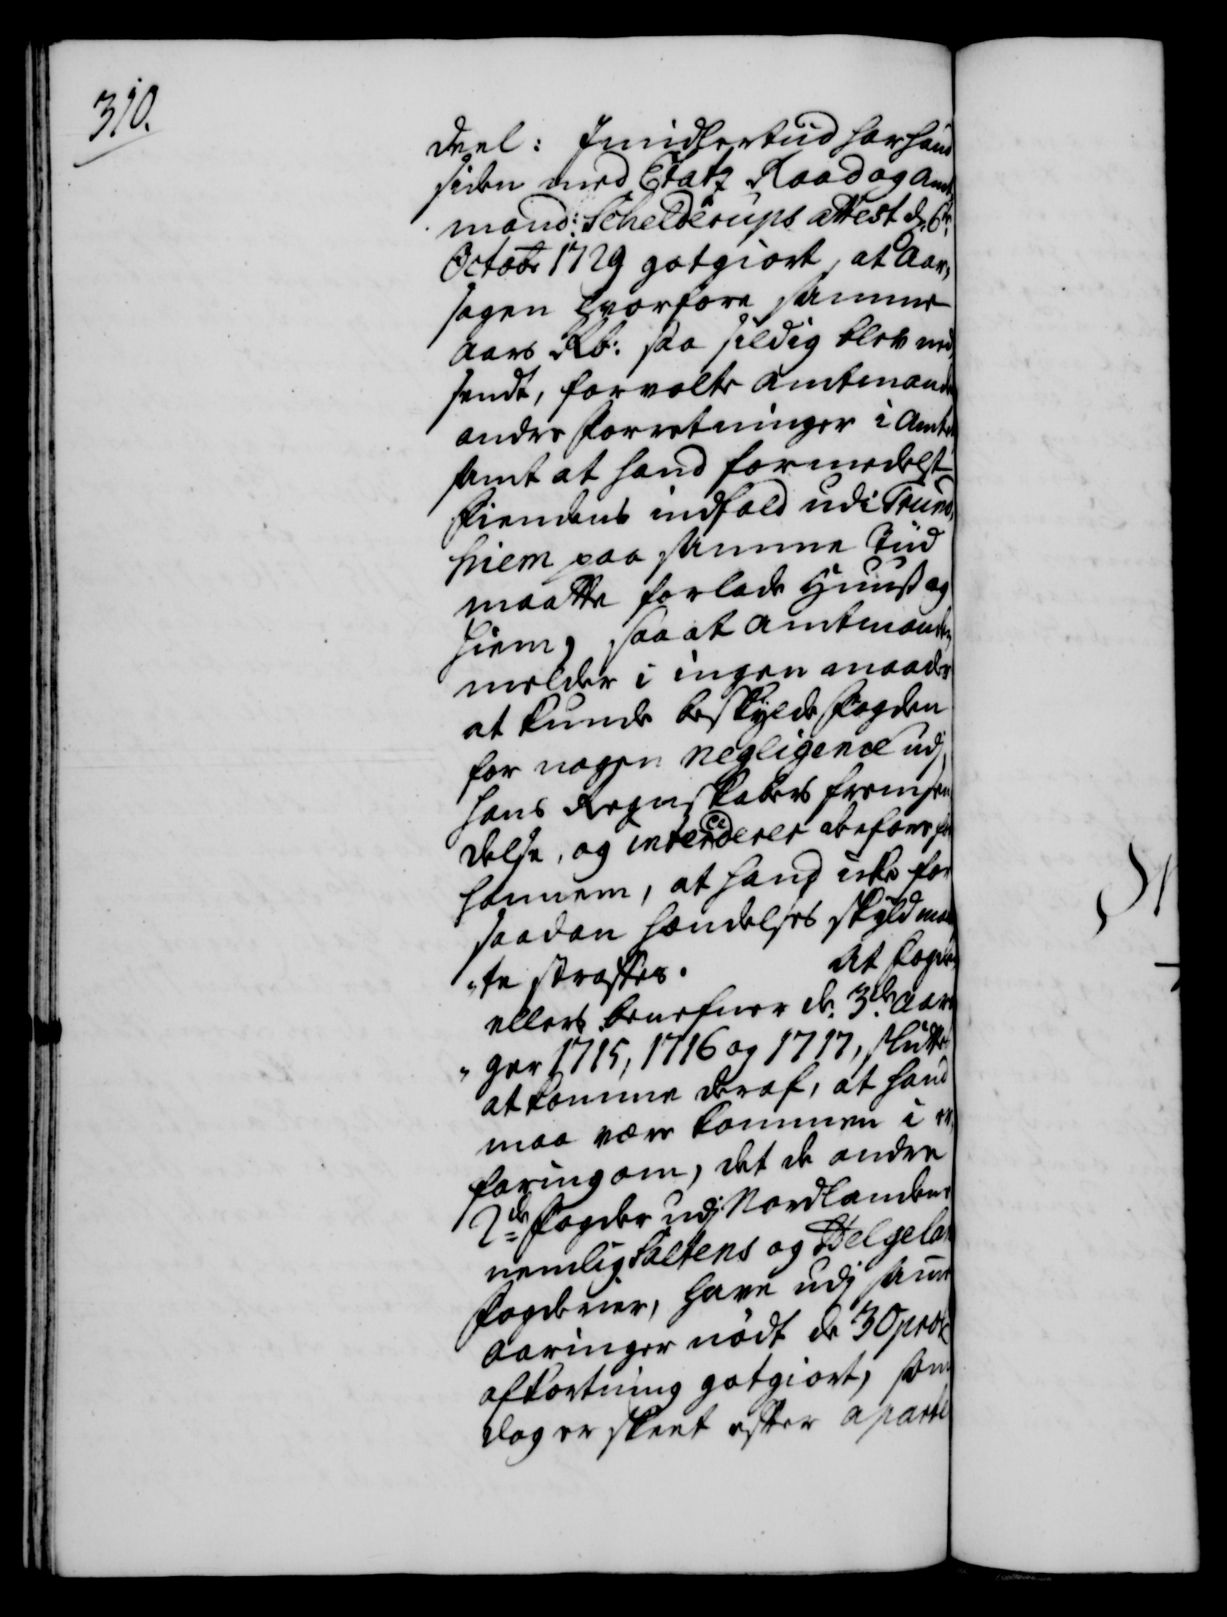 310.
deel: Imidlertiid har hand
siden med Etatz Raad og Amt
mand: Schelderups attest d. 6te
Octobr 1729 gotgiort, at Aar,
sagen hvorfore samme
Aars Rb: saa sildig blev ned,
sendt, forvolte Amtmandens
andre Forretninger i Amtet
samt at hand formedelst
Fiendens indfald udi Trund,
hiem paa samme Tiid
maatte forlade Huus og
Hiem, saa at Amtmanden
melder i ingen maader
at kunde beskylde Fogden
for nogen negligence udj
hans Regnskabers fremsen
delse, og intercederer derfore for
hannem, at hand icke for
saadan hændelses skyld maa
"te straffes. At Fogden
ellers benefner de 3de Aarin
"ger 1715, 1716 og 1717, sluttes
at komme deraf, at hand
maa være kommen i er,
faring om, det de andre
2de Fogder udj Nordlandene
nemlig Saltens og Helgelands
Fogderier, have udj samme
aaringer nödt de 30 pCto
afkortning gotgiort, som
dog er skeet efter aparte